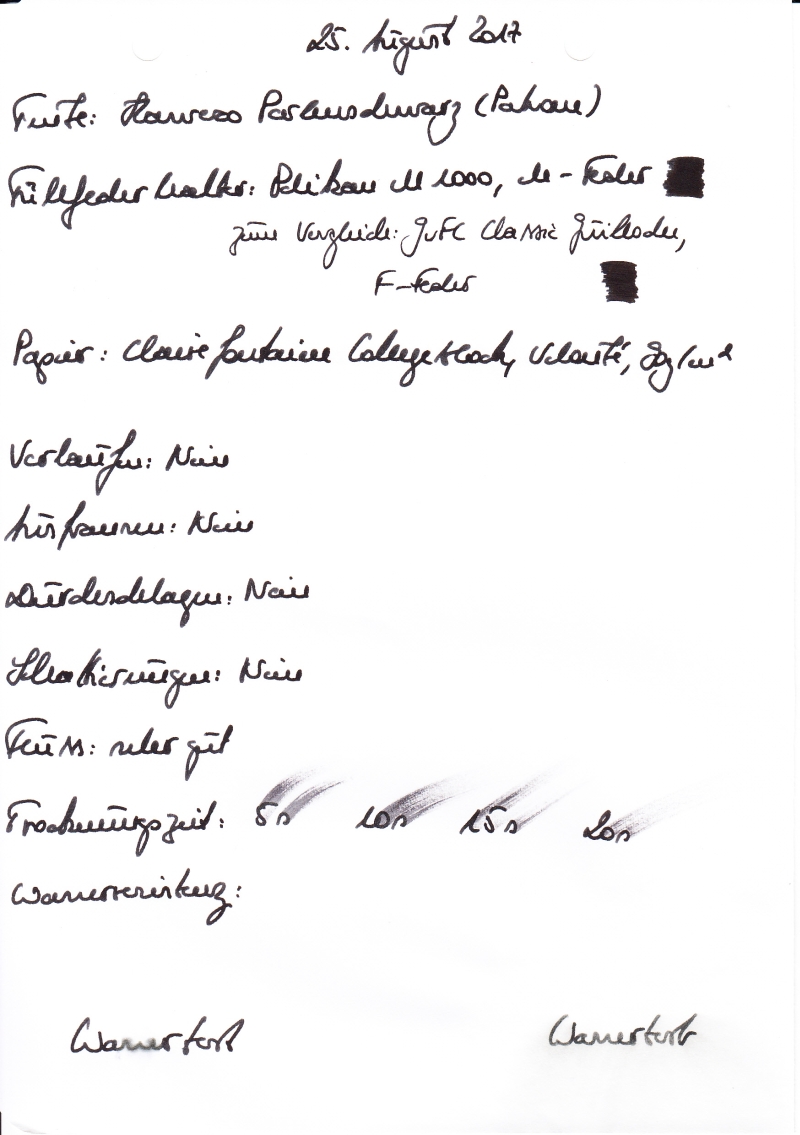 25. August 2017
Tinte: (Patrone)
Füllfederhalter: Pelikan M 1000, M-Feder
zum Vergleich: GvFC Classic
F-Feder
Papier: Clairefontaine Collegeblock, Velouté, 90g/m²
Verlaufen: Nein
Ausfransen: Nein
Durchschlagen: Nein
Schattierungen: Nein
Fluss: sehr gut
Trocknungszeit: 5s 10s 15s 20s
Wasserresistenz:
Wassertest Wassertest